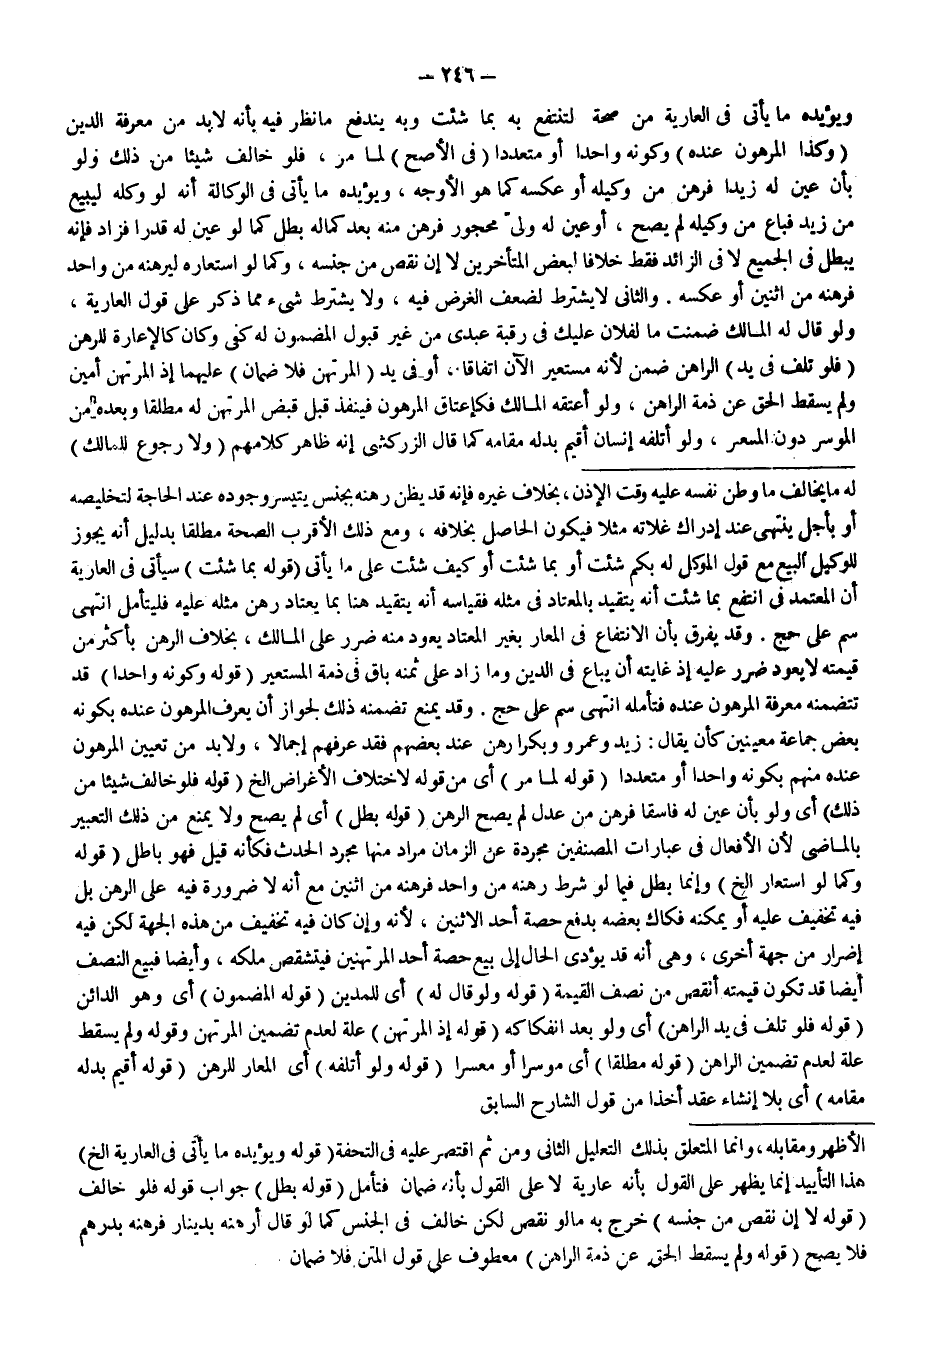 – ٢٤٦ –
ويؤيده ما يأتى فى العارية من صحة لتنتفع به بما شئت وبه يندفع مانظر فيه بأنه لابد من معرفة الدين
( وكذا المرهون عنده ) وكونه واحدا أو متعددا ( فى الأصح ) لما مر ، فلو خالف شيئا من ذلك ولو
بأن عين له زيدا فرهن من وكيله أو عكسه كما هو الأوجه ، ويؤيده ما يأتى فى الوكالة أنه لو وكله ليبيع
من زيد فباع من وكيله لم يصح ، أوعين له ولىّ محجور فرهن منه بعد كماله بطل كما لو عين له قدرا فزاد فإنه
يبطل فى الجميع لا فى الزائد فقط خلافا لبعض المتأخرين لا إن نقص من جنسه ، وكما لو استعاره ليرهنه من واحد
فرهنه من اثنين أو عكسه . والثانى لايشترط لضعف الغرض فيه ، ولا يشترط شىء مما ذكر على قول العارية ،
ولو قال له المالك ضمنت ما لفلان عليك فى رقبة عبدى من غير قبول المضمون له كفى وكان كالإعارة للرهن
( فلو تلف فى يد ) الراهن ضمن لأنه مستعير الآن اتفاقا ، أو فى يد ( المرتهن فلا ضمان ) عليهما إذ المرتهن أمين
ولم يسقط الحق عن ذمة الراهن ، ولو أعتقه المالك فكإعتاق المرهون فينفذ قبل قبض المرتهن له مطلقا وبعده من
الموسر دون المعسر ، ولو أتلفه إنسان أقيم بدله مقامه كما قال الزركشى إنه ظاهر كلامهم ( ولا رجوع للمالك )
له مايخالف ما وطن نفسه عليه وقت الإذن ، بخلاف غيره فإنه قد يظن رهنه بجنس يتيسر وجوده عند الحاجة لتخليصه
أو بأجل ينتهى عند إدراك غلاته مثلا فيكون الحاصل بخلافه ، ومع ذلك الأقرب الصحة مطلقا بدليل أنه يجوز
للوكيل البيع مع قول الموكل له بكم شئت أو بما شئت أو كيف شئت على ما يأتى ( قوله بما شئت ) سيأتى فى العارية
أن المعتمد فى انتفع بما شئت أنه يتقيد بالمعتاد فى مثله فقياسه أنه يتقيد هنا بما يعتاد رهن مثله عليه فليتأمل انتهى
سم على حج . وقد يفرق بأن الانتفاع فى المعار بغير المعتاد يعود منه ضرر على المالك ، بخلاف الرهن بأكثر من
قيمته لايعود ضرر عليه إذ غايته أن يباع فى الدين وما زاد على ثمنه باق فى ذمة المستعير ( قوله وكونه واحدا ) قد
تتضمنه معرفة المرهون عنده فتأمله انتهى سم على حج . وقد يمنع تضمنه ذلك لجواز أن يعرف المرهون عنده بكونه
بعض جماعة معينين كأن يقال : زيد وعمرو وبكرا رهن عند بعضهم فقد عرفهم إجمالا ، ولابد من تعيين المرهون
عنده منهم بكونه واحدا أو متعددا ( قوله لما مر ) أى من قوله لاختلاف الأغراض الخ ( قوله فلو خالف شيئا من
ذلك) أى ولو بأن عين له فاسقا فرهن من عدل لم يصح الرهن ( قوله بطل ) أى لم يصح ولا يمنع من ذلك التعبير
بالماضى لأن الأفعال فى عبارات المصنفين مجردة عن الزمان مراد منها مجرد الحدث فكأنه قيل فهو باطل ( قوله
وكما لو استعار الخ ) وإنما بطل فيما لو شرط رهنه من واحد فرهنه من اثنين مع أنه لا ضرورة فيه على الرهن بل
فيه تخفيف عليه أو يمكنه فكاك بعضه بدفع حصة أحد الاثنين ، لأنه وإن كان فيه تخفيف من هذه الجهة لكن فيه
إضرار من جهة أخرى ، وهى أنه قد يؤدى الحال إلى بيع حصة أحد المرتهنين فيتشقص ملكه ، وأيضا فبيع النصف
أيضا قد تكون قيمته أنقص من نصف القيمة ( قوله ولو قال له ) أى للمدين ( قوله المضمون ) أى وهو الدائن
( قوله فلو تلف فى يد الراهن) أى ولو بعد انفكاكه ( قوله إذ المرتهن ) علة لعدم تضمين المرتهن وقوله ولم يسقط
علة لعدم تضمين الراهن ( قوله مطلقا ) أى موسرا أو معسرا ( قوله ولو أتلفه ) أى المعار للرهن ( قوله أقيم بدله
مقامه ) أى بلا إنشاء عقد أخذا من قول الشارح السابق
الأظهر ومقابله ، وانما المتعلق بذلك التعليل الثانى ومن ثم اقتصر عليه فى التحفة ( قوله ويؤيده ما يأتى فى العارية الخ )
هذا التأييد إنما يظهر على القول بأنه عارية لا على القول بأنه ضمان فتأمل ( قوله بطل ) جواب قوله فلو خالف
( قوله لا إن نقص من جنسه ) خرج به مالو نقص لكن خالف فى الجنس كما لو قال أرهنه بدينار فرهنه بدرهم
فلا يصح ( قوله ولم يسقط الحق عن ذمة الراهن ) معطوف على قول المتن فلا ضمان